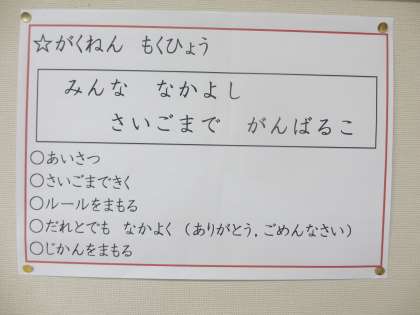 ☆がくねん もくひょう
みんな なかよし
さいごまで がんばるこ
○あいさつ
○さいごまできく
○ルールをまもる
○だれとでも なかよく（ありがとう．ごめんなさい）
○じかんをまもる